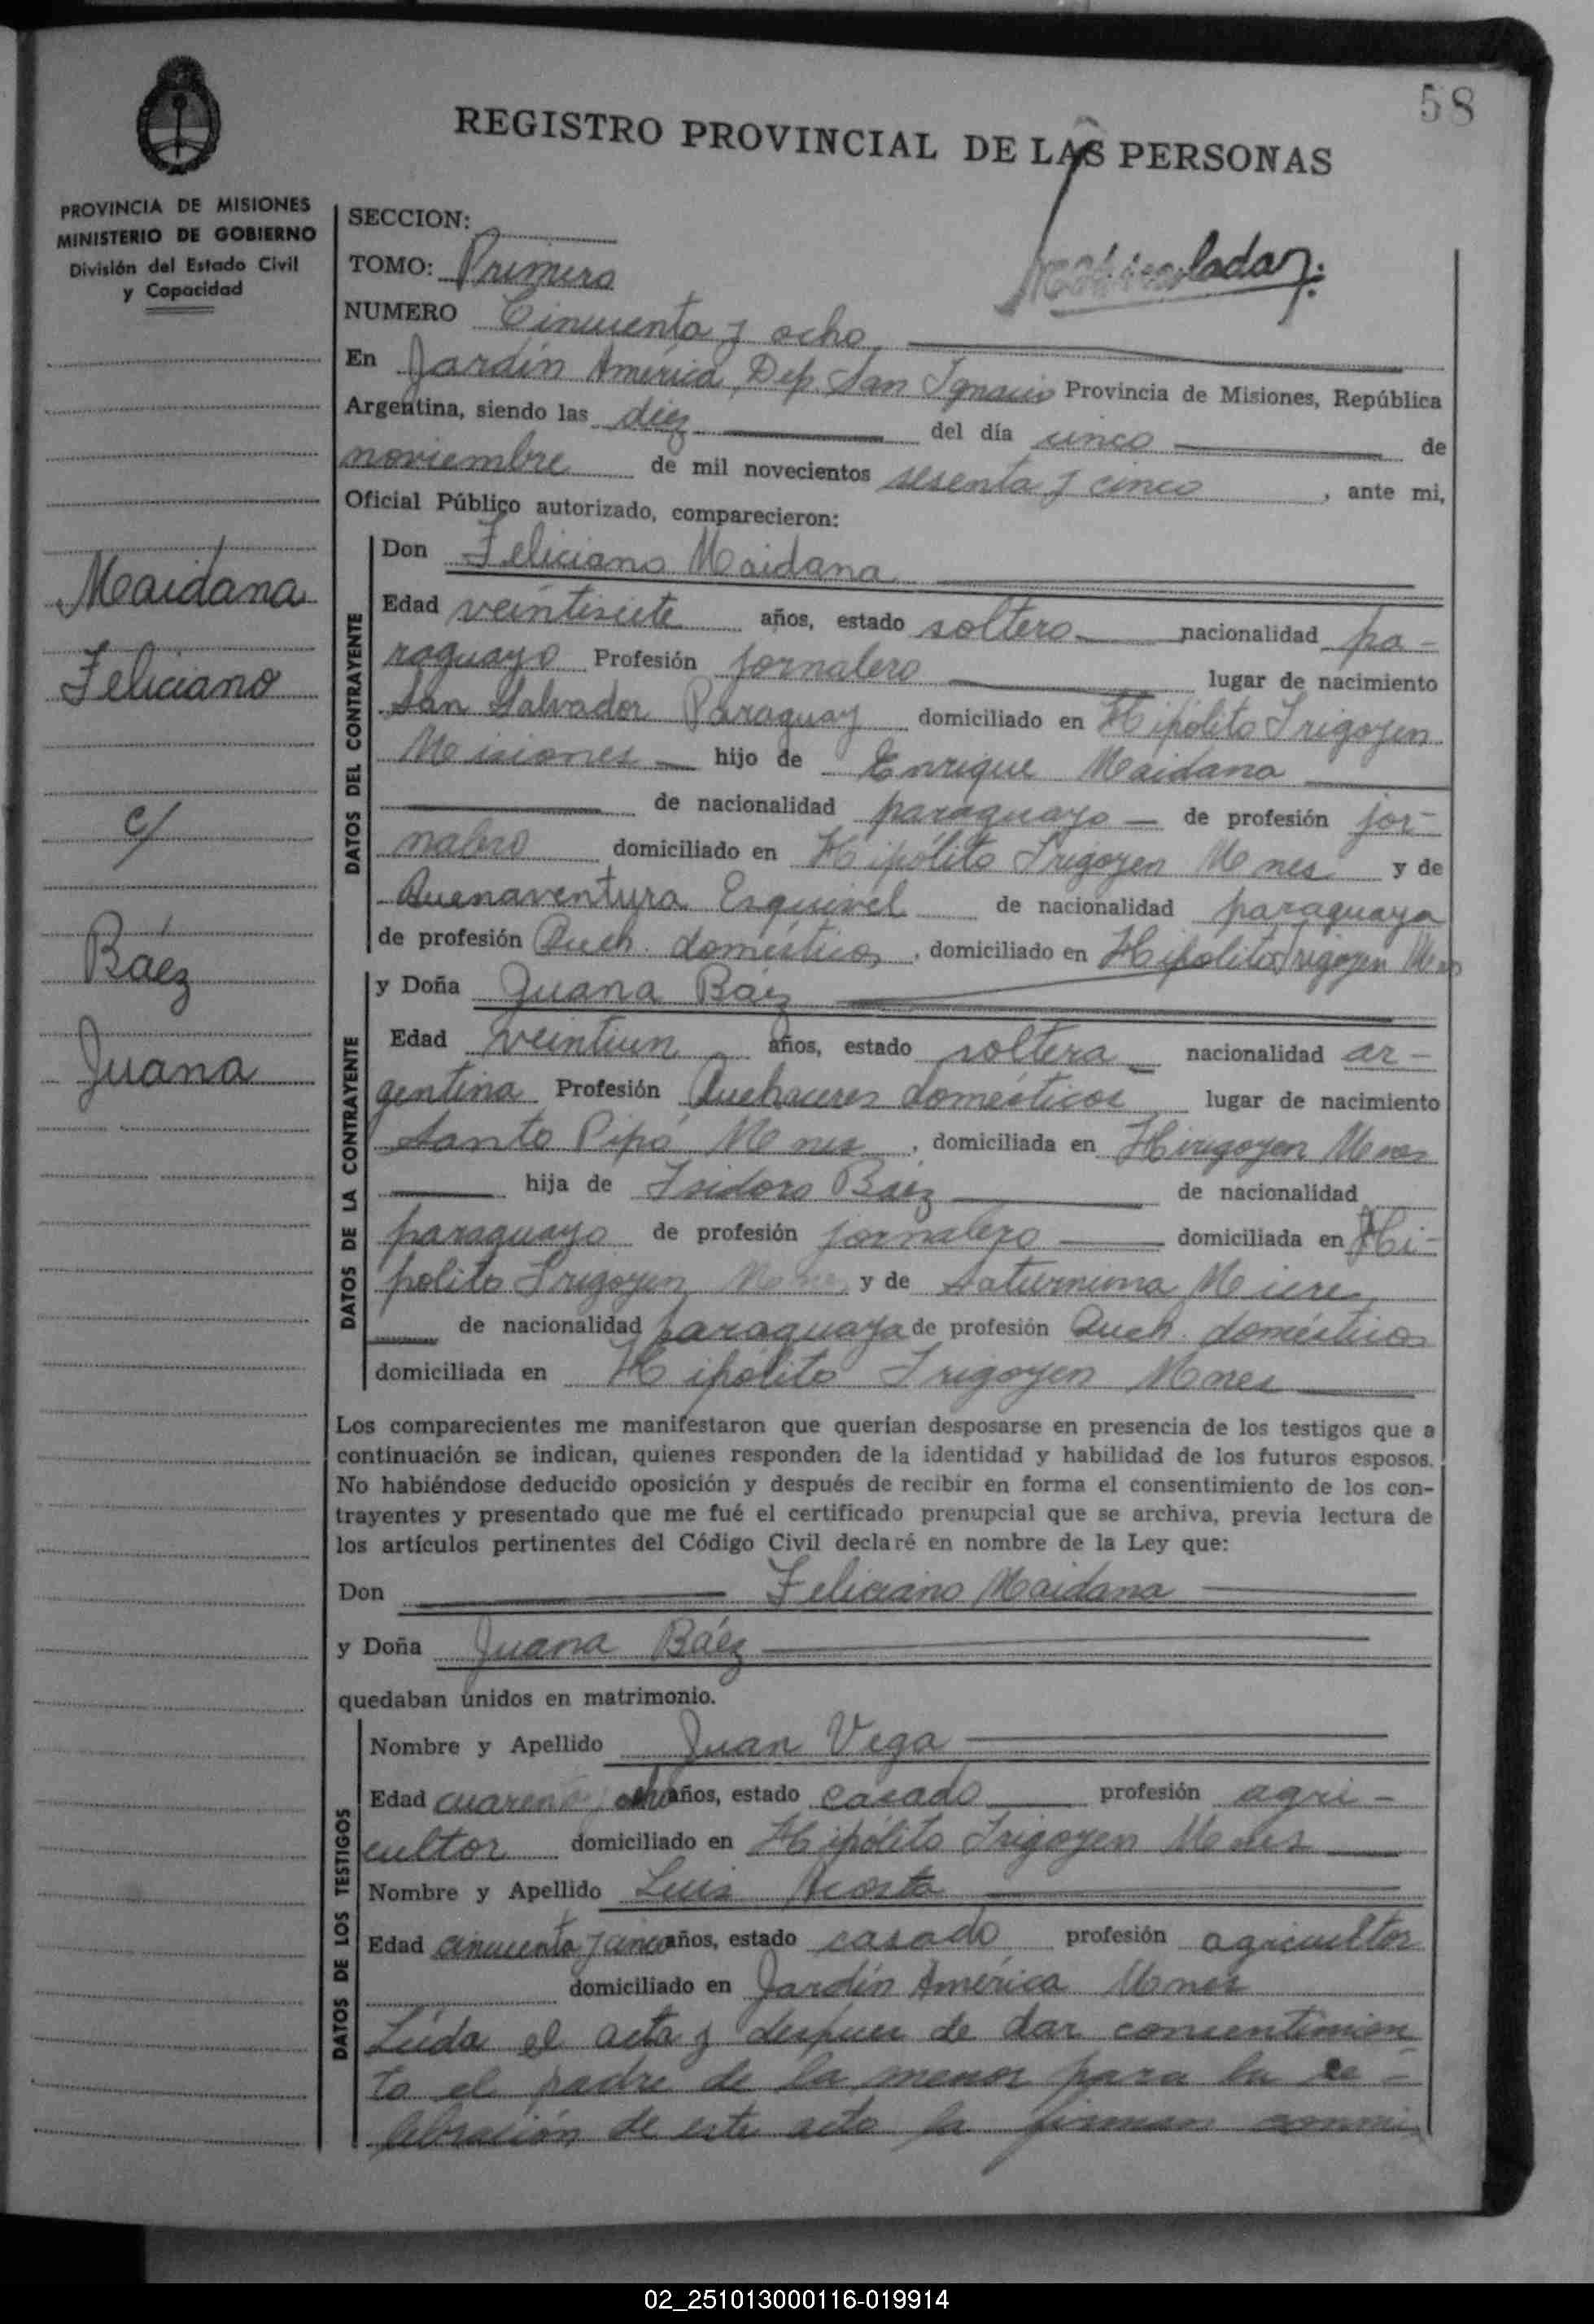 58
REGISTRO PROVINCIAL DE LAS PERSONAS
PROVINCIA DE MISIONES
MINISTERIO DE GOBIERNO
División del Estado Civil
y Capacidad
Maidana
Feliciano
c/
Báez
Juana
SECCION:
TOMO: Primero
NUMERO Cincuenta y ocho
En Jardín América, Dep. San Ignacio Provincia de Misiones, República
Argentina, siendo las diez del día cinco de
noviembre de mil novecientos sesenta y cinco, ante mi,
Oficial Público autorizado, comparecieron:
DATOS DEL CONTRAYENTE
Don Feliciano Maidana
Edad veintisiete años, estado soltero nacionalidad pa-
raguayo Profesión jornalero lugar de nacimiento
San Salvador Paraguay domiciliado en Hipólito Irigoyen
Misiones hijo de Enrique Maidana
de nacionalidad paraguayo de profesión jor-
nalero domiciliado en Hipólito Irigoyen Mnes y de
Buenaventura Esquivel de nacionalidad paraguaya
de profesión Queh. domésticos, domiciliado en Hipólito Irigoyen Mnes
DATOS DE LA CONTRAYENTE
y Doña Juana Báez
Edad veintiun años, estado soltera nacionalidad ar-
gentina Profesión Quehaceres domésticos lugar de nacimiento
Santo Pipó Mnes, domiciliada en Hirigoyen Mnes
hija de Isidoro Báez de nacionalidad
paraguayo de profesión jornalero domiciliada en Hi-
pólito Irigoyen Mnes y de Saturnina
de nacionalidad paraguaya de profesión Queh. domésticos
domiciliada en Hipólito Irigoyen Mnes
Los comparecientes me manifestaron que querían desposarse en presencia de los testigos que a
continuación se indican, quienes responden de la identidad y habilidad de los futuros esposos.
No habiéndose deducido oposición y después de recibir en forma el consentimiento de los con-
trayentes y presentado que me fué el certificado prenupcial que se archiva, previa lectura de
los artículos pertinentes del Código Civil declaré en nombre de la Ley que:
Don Feliciano Maidana
y Doña Juana Báez
quedaban unidos en matrimonio.
DATOS DE LOS TESTIGOS
Nombre y Apellido Juan Vega
Edad años, estado casado profesión agri-
cultor domiciliado en Hipólito Irigoyen Mnes
Nombre y Apellido Luis Acosta
Edad cincuenta y cinco años, estado casado profesión agricultor
domiciliado en Jardín América Mnes
Leida el acta y despues de dar consentimien
to el padre de la menor para la ce-
lebración de este acto la firman conmi
02_251013000116-019914